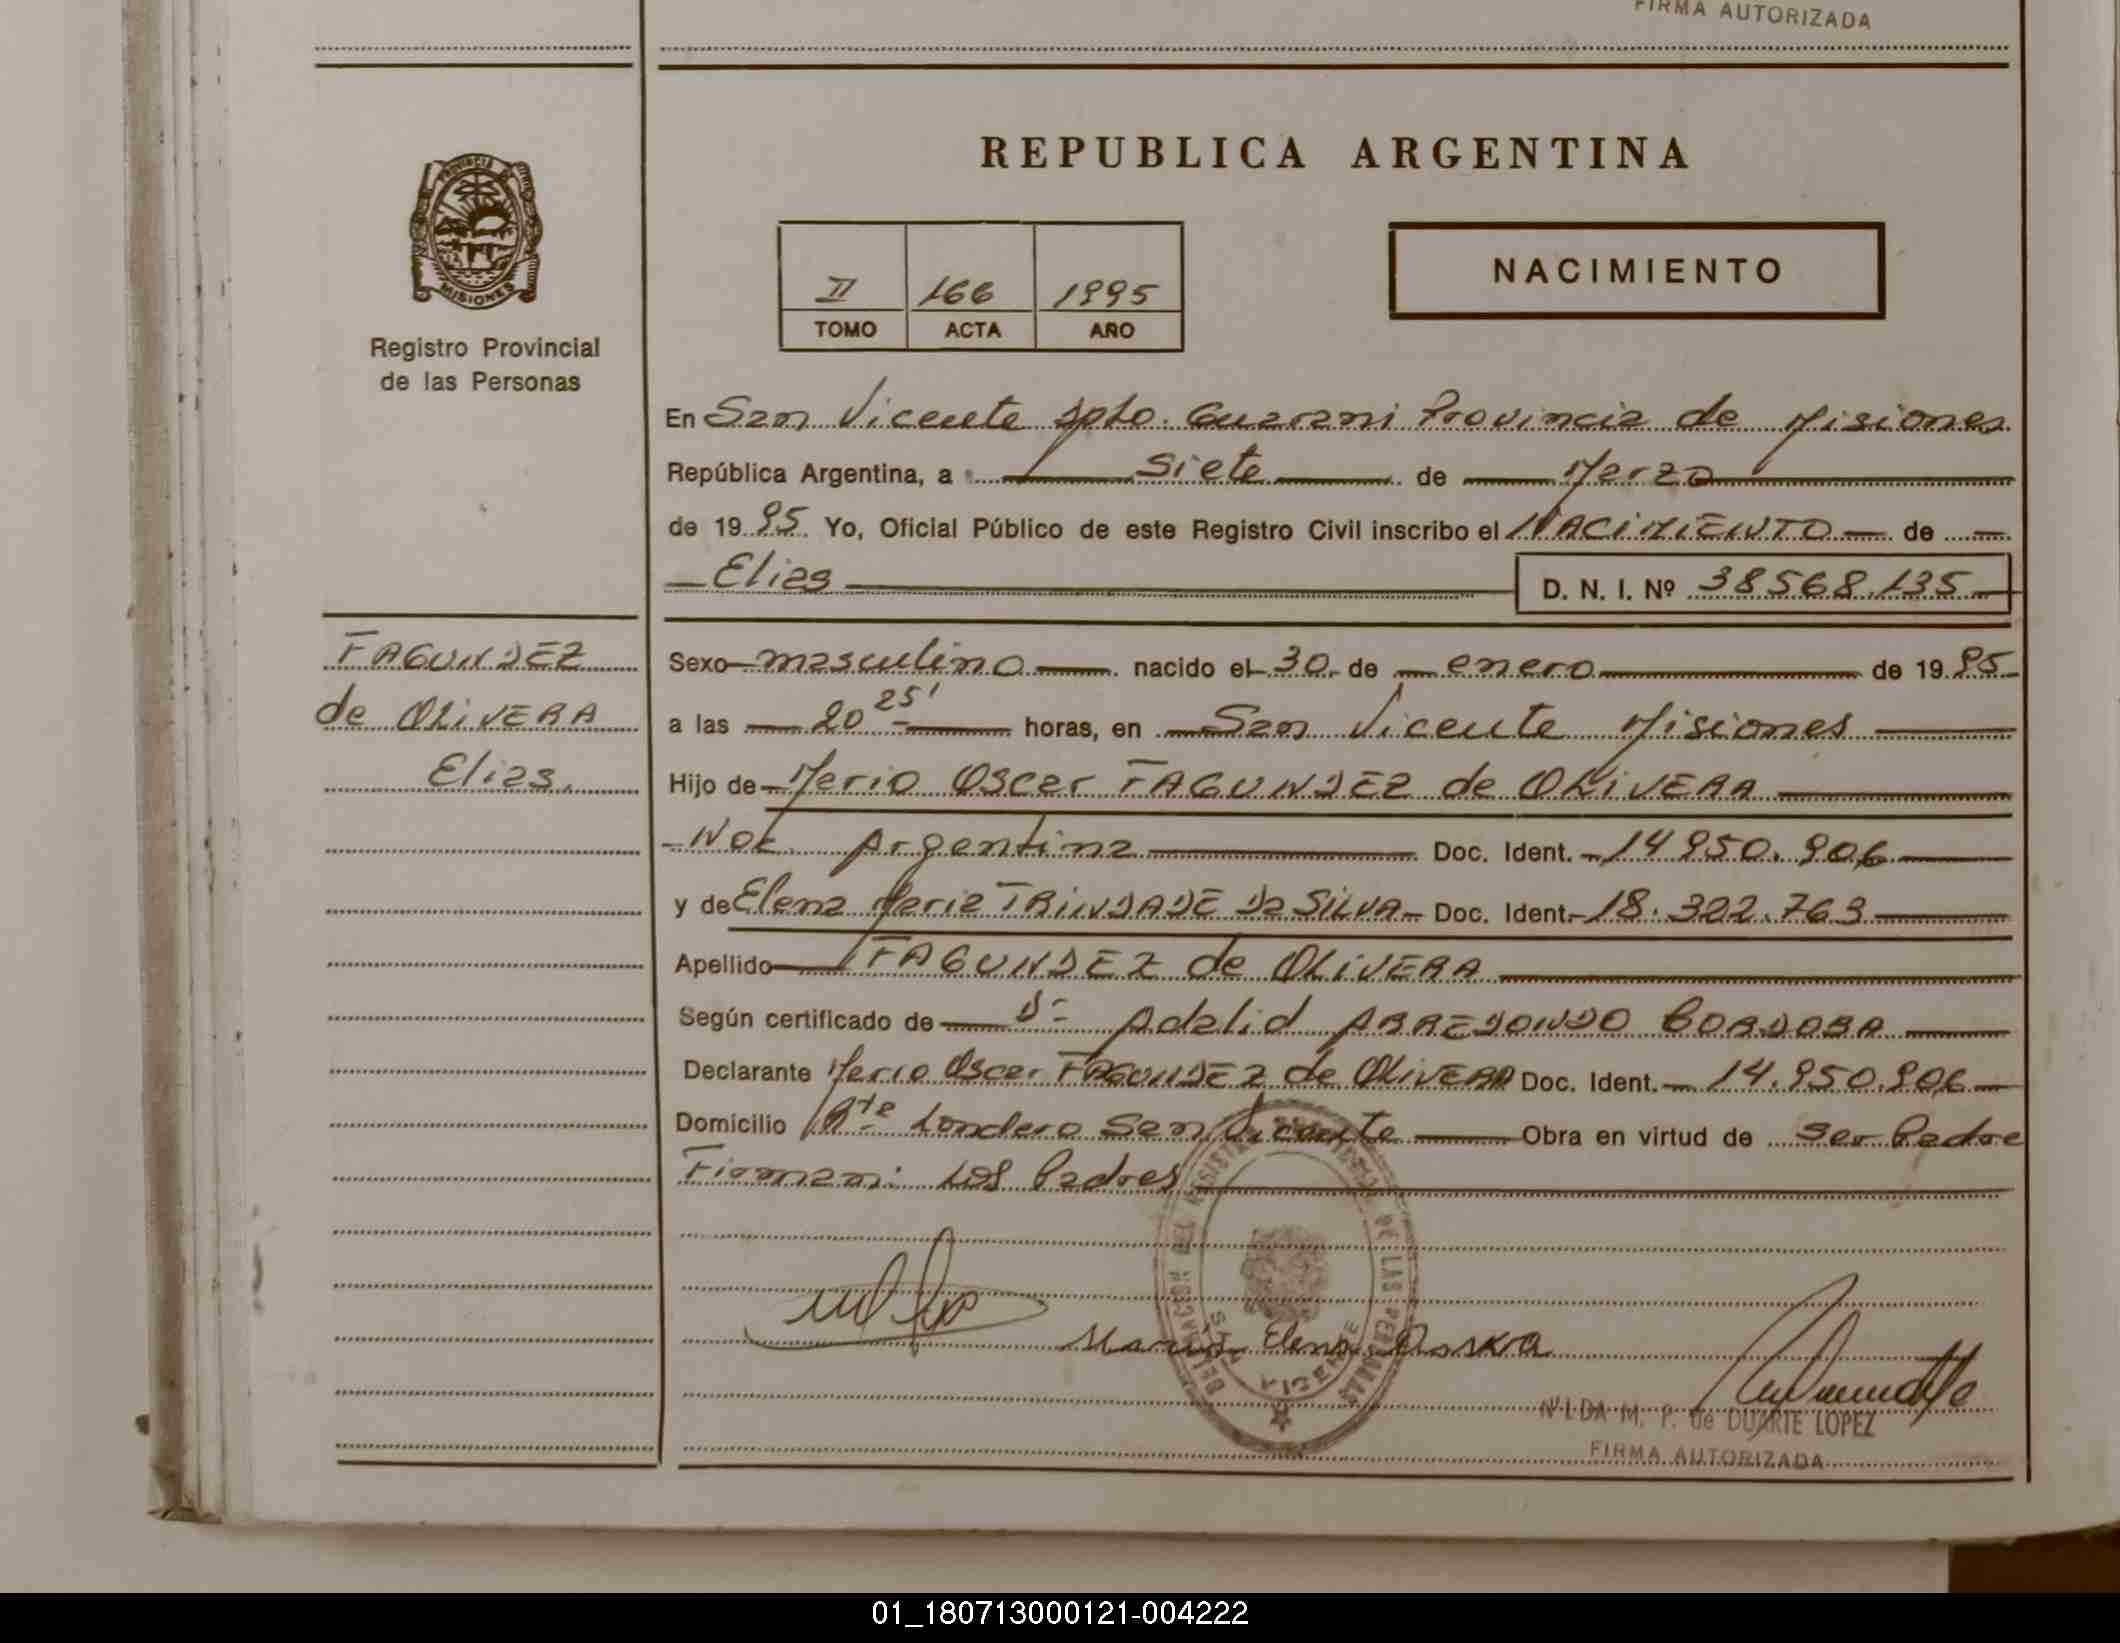 FIRMA AUTORIZADA
REPUBLICA ARGENTINA
PROVINCIA DE
MISIONES
Registro Provincial
de las Personas
II 166 1995
TOMO ACTA AÑO
NACIMIENTO
En San Vicente Dpto. Guarani Provincia de Misiones
República Argentina, a Siete de Marzo
de 19 95 Yo, Oficial Público de este Registro Civil inscribo el NACIMIENTO de
Elias D. N. I. Nº 38568.135
FAGUNDEZ
de OLIVERA
Elias.
Sexo masculino nacido el 30 de enero de 19 95
a las 20 25' horas, en San Vicente Misiones
Hijo de Mario Oscar FAGUNDEZ de OLIVERA
Nac. Argentina Doc. Ident. 14950.906
y de Elena Maria TRINDADE Da SILVA Doc. Ident. 18.322.763
Apellido FAGUNDEZ de OLIVERA
Según certificado de Dr Adalid ARREDONDO CORDOBA
Declarante Mario Oscar FAGUNDEZ de OLIVERA Doc. Ident. 14.950.906
Domicilio Londero San Vicente Obra en virtud de ser Padre
Firman: Los Padres
DE LAS PERSONAS
SAN VICENTE
Maria Elena
NILDA M. P. de DUARTE LOPEZ
FIRMA AUTORIZADA
01_180713000121-004222